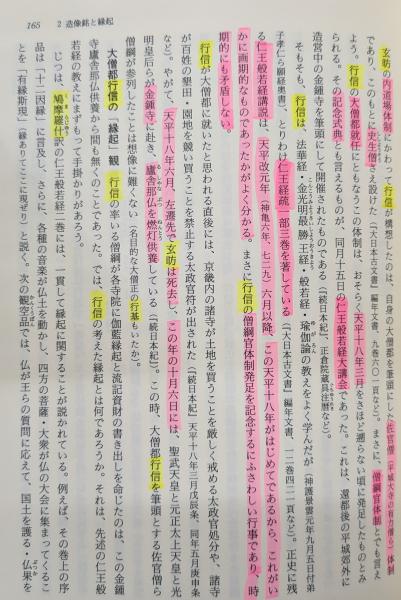 165　2　造像銘と縁起
玄昉の内道場体制にかわって行信が構想したのは、自身の大僧都を筆頭にした佐官僧（平城大寺の有力僧ら）体制
であり、このもとに中生僧さえ設けた（『大日本古文書』編年文書、九巻六〇一頁など）。まさに、僧綱官体制とでも言え
よう。行信の大僧都就任にともなうこの体制は、おそらく天平十八年三月をさほど遡らない頃に発足したものとみ
られる。その記念式典とも言えるものが、同月十五日の仁王般若経大講会であった。これは、還都後の平城宮外に
造営中の金鍾寺を筆頭にして開催されたものである（『続日本紀』、正倉院蔵具注暦など）。
そもそも、行信は、法華経・金光明最勝王経・般若経・瑜伽論の教えをよく学んだが（神護景雲元年九月五日付弟
子孝仁ら願経奥書）、とりわけ仁王経疏一部三巻を著している（『大日本古文書』編年文書、一二巻四二一頁など）。正史に残
る仁王般若経講説は、天平改元年（神亀六年、七二九）六月以降、この天平十八年がはじめてであるから、これがい
かに画期的なものであったかがよく分かる。まさに行信の僧綱官体制発足を記念するにふさわしい行事であり、時
期的にも矛盾しない。
行信が大僧都に就いたと思われる直後には、京畿内の諸寺が土地を買うことを厳しく戒める太政官処分や、諸寺
が百姓の墾田・園地を競い買うことを禁止する太政官符が出された（『続日本紀』天平十八年三月戊辰条、同年五月庚申条
など）。やがて、天平十八年六月、左遷先で玄昉は死去し、この年の十月六日には、聖武天皇と元正太上天皇と光
明皇后らが金鍾寺に赴き、盧舎那仏を燃灯供養している（『続日本紀』）。この時、大僧都行信を筆頭とする佐官僧ら
僧綱が参列したことは想像に難くない（名目的な大僧正の行基もいたか）。
大僧都行信の「縁起」観　行信の率いる僧綱が各寺院に伽藍縁起と流記資財の書き出しを命じたのは、この金鍾
寺盧舎那仏供養から間も無くのことであった。では、行信の考えた縁起とは何であろうか。それは、先述の仁王般
若経の教えにまずもって手掛かりがあろう。
じつは、鳩摩羅什訳の仁王般若経二巻には、一貫して縁起に関することが説かれている。例えば、その巻上の序
品は「十二因縁」に言及し、さらに、各種の音楽が仏土を動かし、四方の菩薩・大衆が仏の大会に集まってくるこ
とを「有縁斯現」（縁ありてここに現ぜり）と説く。次の観空品では、仏が王らの質問に応えて、国土を護る・仏果を